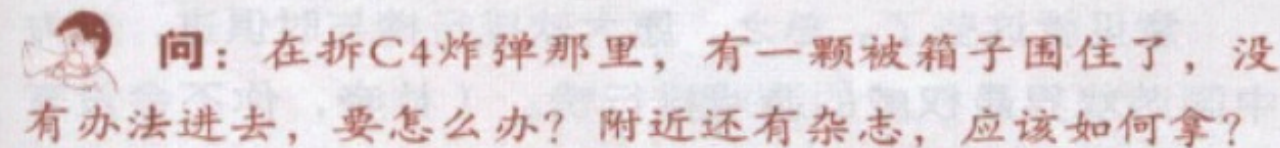 问：在拆C4炸弹那里，有一颗被箱子围住了，没
有办法进去，要怎么办？附近还有杂志，应该如何拿？